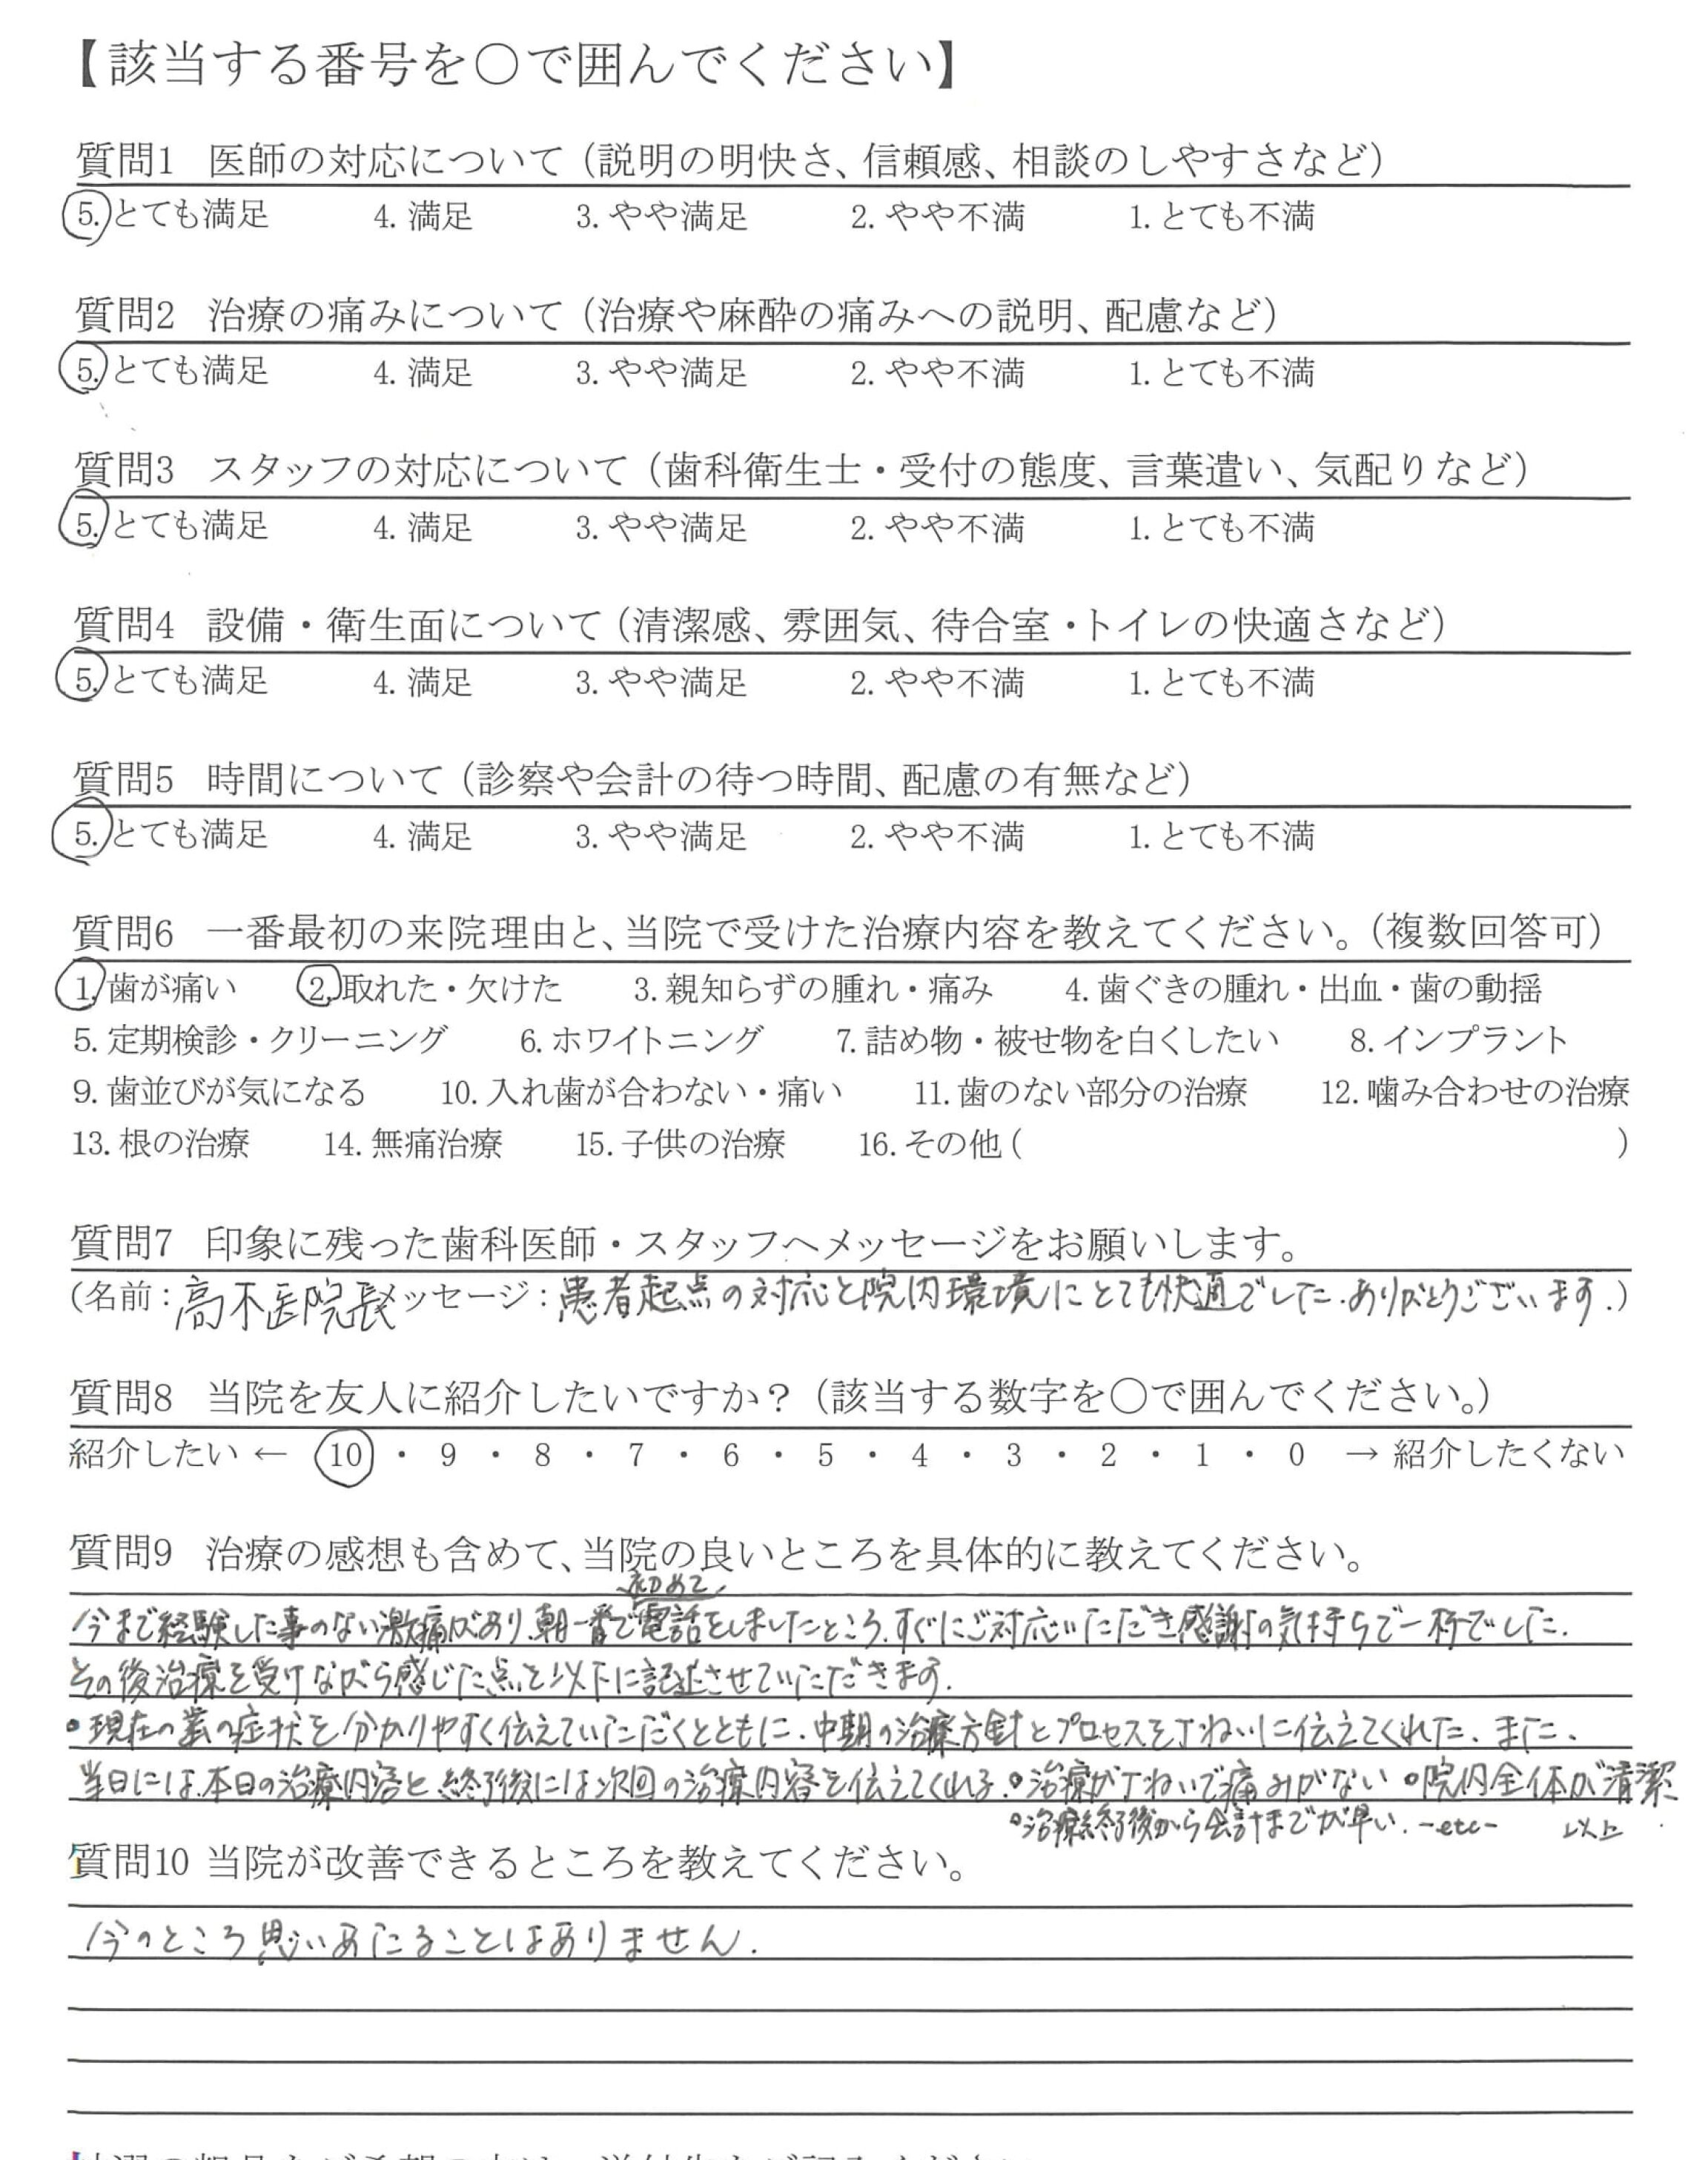 【該当する番号を○で囲んでください】
質問1 医師の対応について（説明の明快さ、信頼感、相談のしやすさなど）
5.とても満足 4.満足 3.やや満足 2.やや不満 1.とても不満
質問2 治療の痛みについて（治療や麻酔の痛みへの説明、配慮など）
5.とても満足 4.満足 3.やや満足 2.やや不満 1.とても不満
質問3 スタッフの対応について（歯科衛生士・受付の態度、言葉遣い、気配りなど）
5.とても満足 4.満足 3.やや満足 2.やや不満 1.とても不満
質問4 設備・衛生面について（清潔感、雰囲気、待合室・トイレの快適さなど）
5.とても満足 4.満足 3.やや満足 2.やや不満 1.とても不満
質問5 時間について（診察や会計の待つ時間、配慮の有無など）
5.とても満足 4.満足 3.やや満足 2.やや不満 1.とても不満
質問6 一番最初の来院理由と、当院で受けた治療内容を教えてください。（複数回答可）
1.歯が痛い 2.取れた・欠けた 3.親知らずの腫れ・痛み 4.歯ぐきの腫れ・出血・歯の動揺
5.定期検診・クリーニング 6.ホワイトニング 7.詰め物・被せ物を白くしたい 8.インプラント
9.歯並びが気になる 10.入れ歯が合わない・痛い 11.歯のない部分の治療 12.噛み合わせの治療
13.根の治療 14.無痛治療 15.子供の治療 16.その他（ ）
質問7 印象に残った歯科医師・スタッフへメッセージをお願いします。
（名前：高不医院長メッセージ：患者起点の対応と院内環境にとても快適でした.ありがとうございます.）
質問8 当院を友人に紹介したいですか？（該当する数字を○で囲んでください。）
紹介したい ← 10 ・ 9 ・ 8 ・ 7 ・ 6 ・ 5 ・ 4 ・ 3 ・ 2 ・ 1 ・ 0 → 紹介したくない
質問9 治療の感想も含めて、当院の良いところを具体的に教えてください。
初めて
今まで経験した事のない激痛があり、朝一番で電話をしましたところ、すぐにご対応いただき感謝の気持ちで一杯でした.
その後治療を受けながら感じた点を以下に記述させていただきます.
・現在の歯の症状を分かりやすく伝えていただくとともに、中期の治療方針とプロセスをていねいに伝えてくれた. また、
当日には、本日の治療内容と、終了後には次回の治療内容を伝えてくれる.・治療がていねいで痛みがない ・院内全体が清潔
・治療終了後から会計までが早い. -etc- 以上
質問10 当院が改善できるところを教えてください。
今のところ思いあたることはありません.